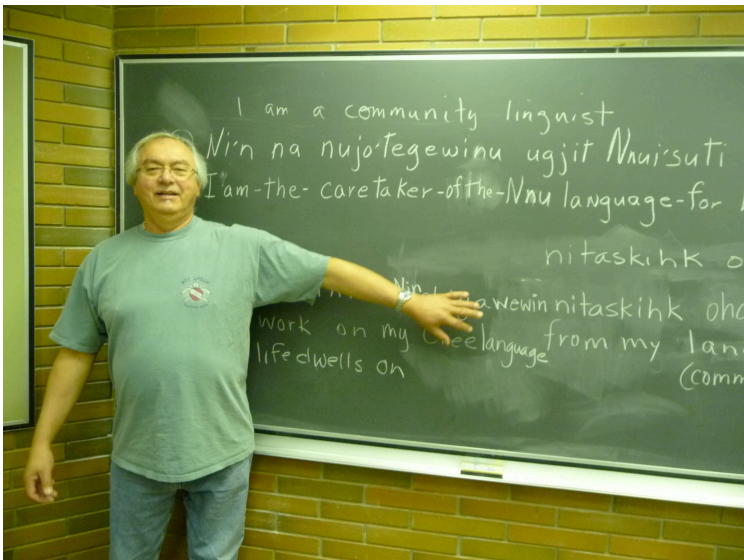 I am a community linguist
Ni'n na nujo'tegewinu ugjit Nnui'suti
I'am-the-caretaker-of-the-Nnu language-for
nitaskihk o
Nin
awewin nitaskihk oho
work on my Cree language from my lan
life dwells on
(comm